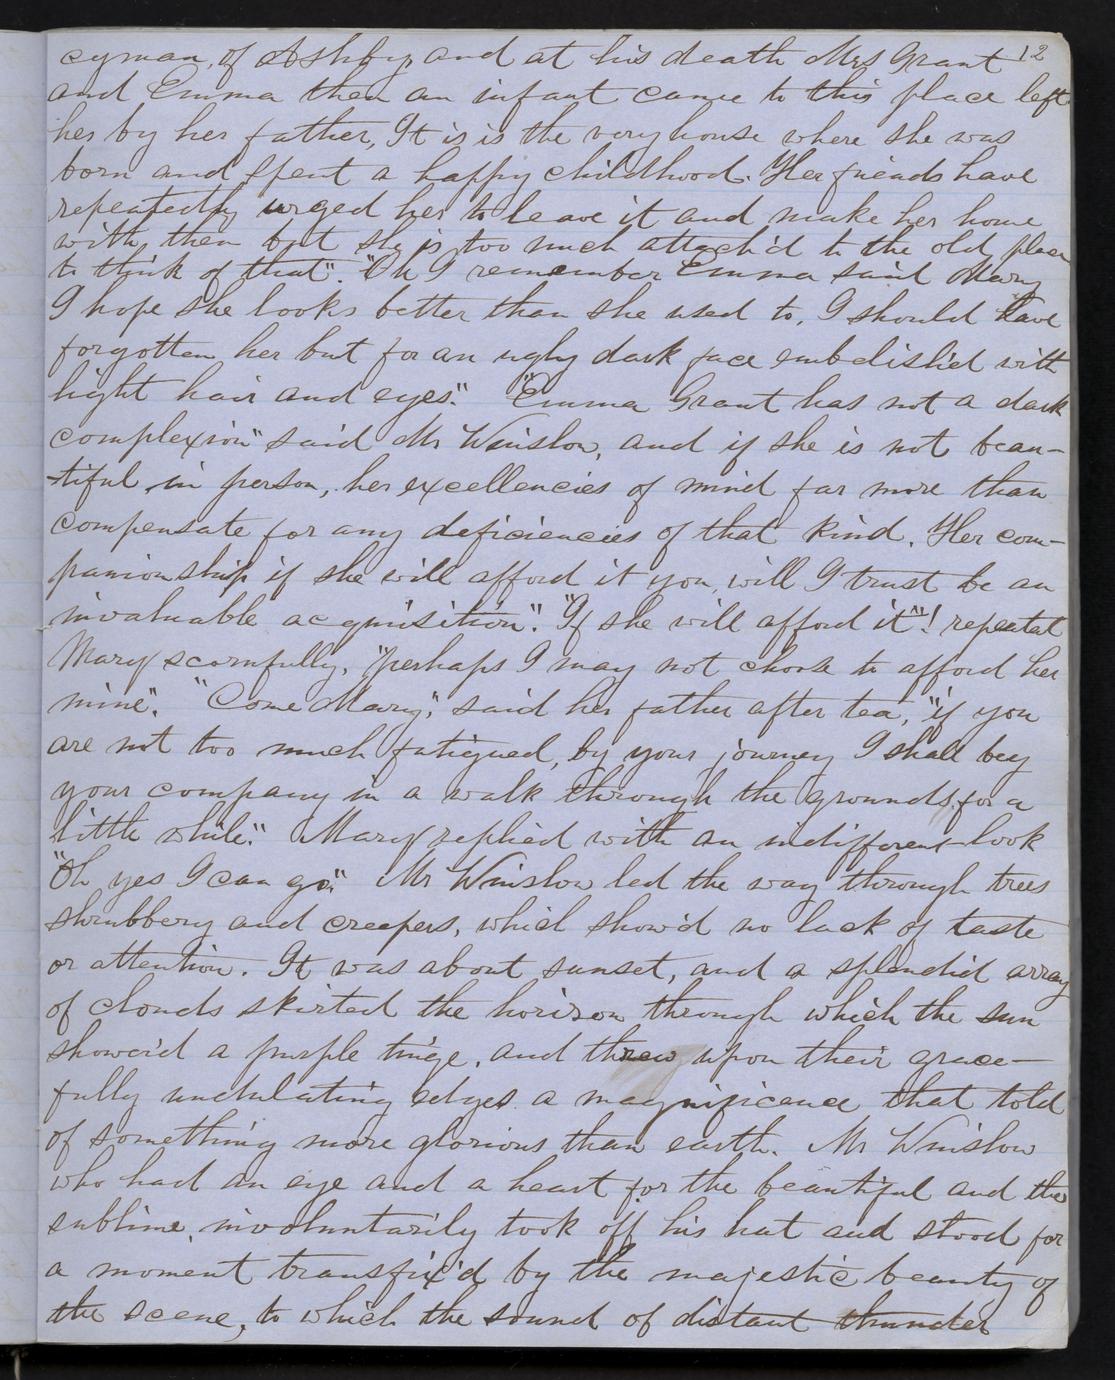 12
cyman, of Ashby and at his death Mrs Grant
and Emma then an infant came to this place left
her by her father, It is is the very house where she was
born and spent a happy childhood. Her friends have
repeatedly urged her to leave it and make her home
with them but she is too much attach'd to the old place
to think of that". "Oh I remember Emma said Mary
I hope she looks better than she used to, I should have
forgotten her but for an ugly dark face embelish'd with
light hair and eyes". "Emma Grant has not a dark
complexion" said Mr Winslow, and if she is not beau-
-tiful in person, her excellencies of mind far more than
compensate for any deficiencies of that kind. Her com-
panionship if she will afford it you, will I trust be an
invaluable acquisition". "If she will afford it"! repeatat
Mary scornfully, "perhaps I may not choose to afford her
mine". "Come Mary", said her father after tea, "if you
are not too much fatigued, by your journey I shall beg
your company in a walk through the grounds for a
little while". Mary replied with an indifferent look
"Oh yes I can go". Mr Winslow led the way through trees
shrubbery and creepers, which show'd no lack of taste
or attention. It was about sunset, and a splendid array
of clouds skirted the horizon through which the sun
showe'd a purple tinge, and threw upon their grace-
fully undulating edges a magnificence that told
of something more glorious than earth. Mr Winslow
who had an eye and a heart for the beautiful and the
sublime, involuntarily took off his hat and stood for
a moment transfix'd by the majestic beauty of
the scene, to which the sound of distant thunder